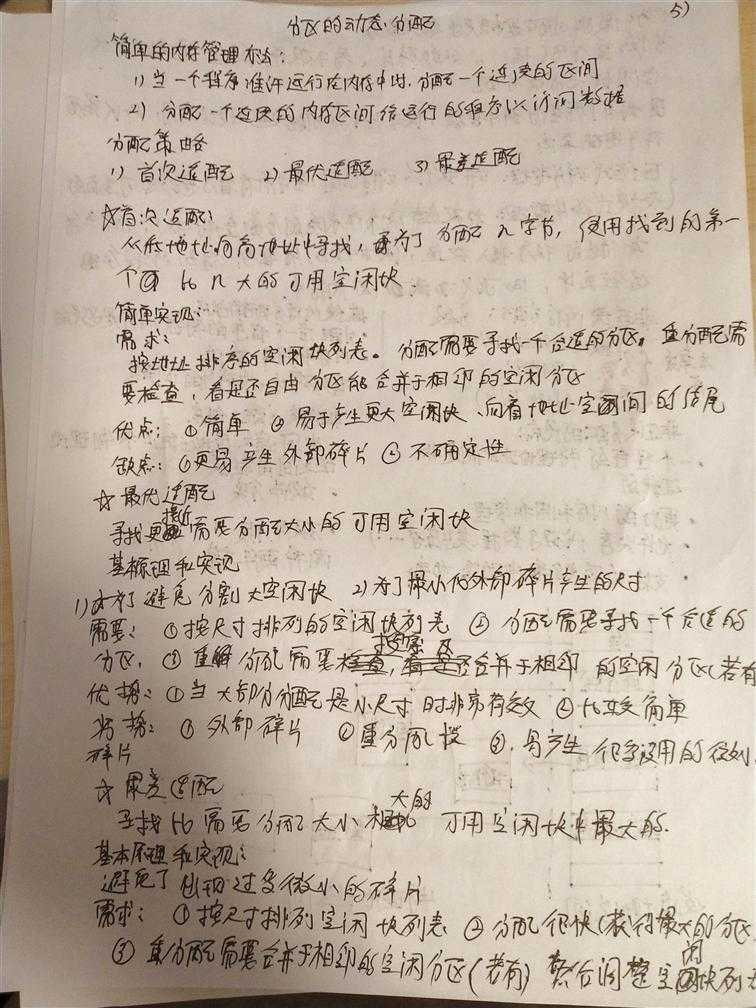 5)
分区的动态分配
简单的内存管理办法:
1) 当一个程序准许运行在内存中时,分配一个连续的区间
2) 分配一个连续的内存区间给运行的程序以访问数据
分配策略
1) 首次适配 2) 最优适配 3) 最差适配
☆首次适配:
从低地址向高地址中寻找,为了分配n字节,使用找到的第一
个 比n大的可用空闲块.
简单实现:
需求:
按地址排序的空闲块列表。分配需要寻找一个合适的分区。重分配需
要检查,看是否自由分区能合并于相邻的空闲分区
优点: ①简单 ②易于产生更大空闲块、向着地址空间的结尾
缺点: ①更易产生外部碎片 ②不确定性
☆最优适配
寻找更接近需要分配大小的可用空闲块
基本原理和实现
1) 为了避免分割大空闲块 2) 为了最小化外部碎片产生的尺寸
需要: ①按尺寸排列的空闲块列表 ②分配需要寻找一个合适的
分区. ③重新分配需要搜索及合并于相邻的空闲分区(若有
优势: ①当大部分分配是小尺寸时非常有效 ②比较简单
劣势: ①外部碎片 ②重分配慢 ③.易产生很多没用的微小
碎片
☆最差适配
寻找比需要分配大小大的可用空闲块中最大的.
基本原理和实现:
避免了出现过多微小的碎片
需求: ①按尺寸排列空闲块列表 ②分配很快(获得最大的分区
③重分配需要合并于相邻的空闲分区(若有) 然后调整空闲块列表